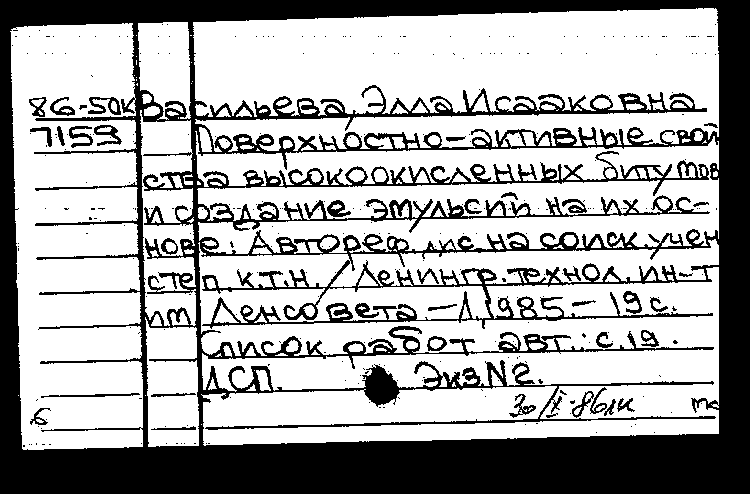 86-50к Васильева, Элла Исааковна
7159 Поверхностно-активные свой
ства высокоокисленных битумов
и создание эмульсий на их ос-
нове: Автореф. дис. на соиск. учен
степ. к.т.н. / Ленингр. технол. ин-т
им. Ленсовета — Л, 1985. — 19 с.
Список работ авт.: с. 19.
ДСП. Экз. № 2.
6